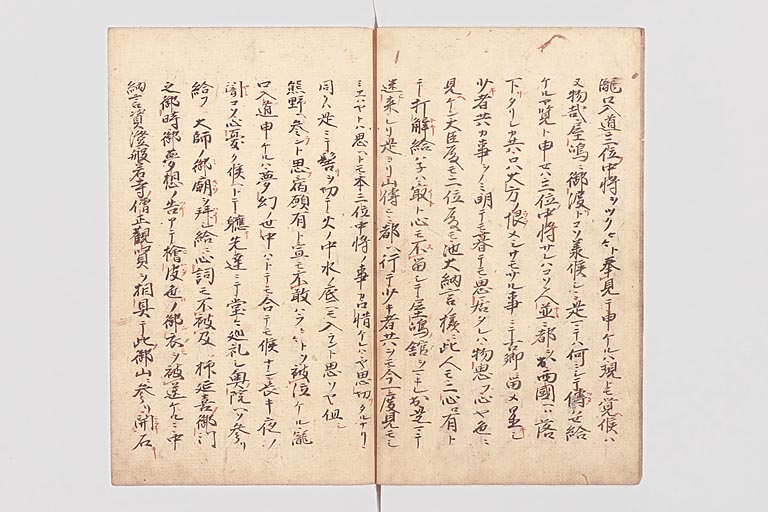 瀧口入道三位中将ヲツク〳〵ト奉見テ申ケルハ現トモ覚候ハ
ス物哉屋嶋ニ御渡トコソ義候シニ是ニテハ何ニシテ傳セ給
ケルヤ覧ト申セハ三位中将サレハコソ人並ニ都ヲ出西國ヘ落
下タリシ カ共口ハ大方ノ恨メシサモサル事ニテ古郷ニ留メ置シ
少者共カ事ヲノミ明テモ暮テモ思居タレハ物思フ心ヤ色ニ
見ケン大臣殿モ二位殿モ池大納言ノ様ニ此人モ二心有ト
テ打解給ハネハ最ト心モ不留シテ屋嶋舘ヲニケ出是ニテ
迷来レリ是ヨリ山傳ニ都ヘ行テ少キ者共ヲモ今一度見モシ
ミエハヤトハ思ヘトモ本三位中将ノ事口惜ケレハ思切タルナリ
同クハ是ニテ髻ヲ切テ火ノ中水ノ底ヘモ入ラント思ソヤ但シ
熊野ヘ参ント思宿願有ト宣モ不敢ハラ〳〵トソ被泣ケル瀧
口入道申ケルハ夢幻ノ世中ハトテモ合テモ候ナン長キ夜ノ
闇コソ心憂ク候ヘトテ軈先達ニテ堂々巡礼シ奥院ヘソ参リ
給フ大師ノ御廟ヲ拝給ニ心詞モ不被及抑延喜御門
之御時御夢想ノ告アテ檜皮色ノ御衣ヲ被送ケルニ中
納言資澄般若寺僧正觀賢ヲ相具シテ此御山ニ参リ開石